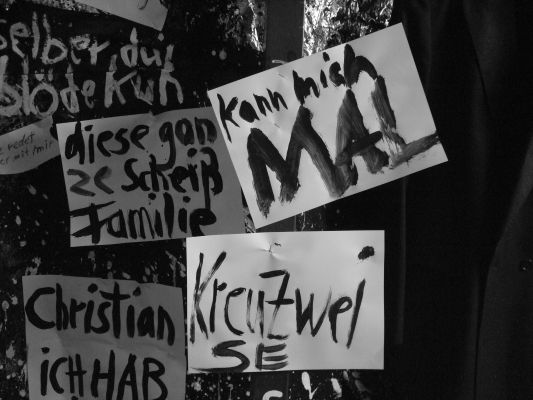 selber, du
blöde Kuh
redet
er mit mir
diese gan
ze Scheiß
Familie
kann mich
MAL
Kreuzwei
SE
Christian
icH HAB